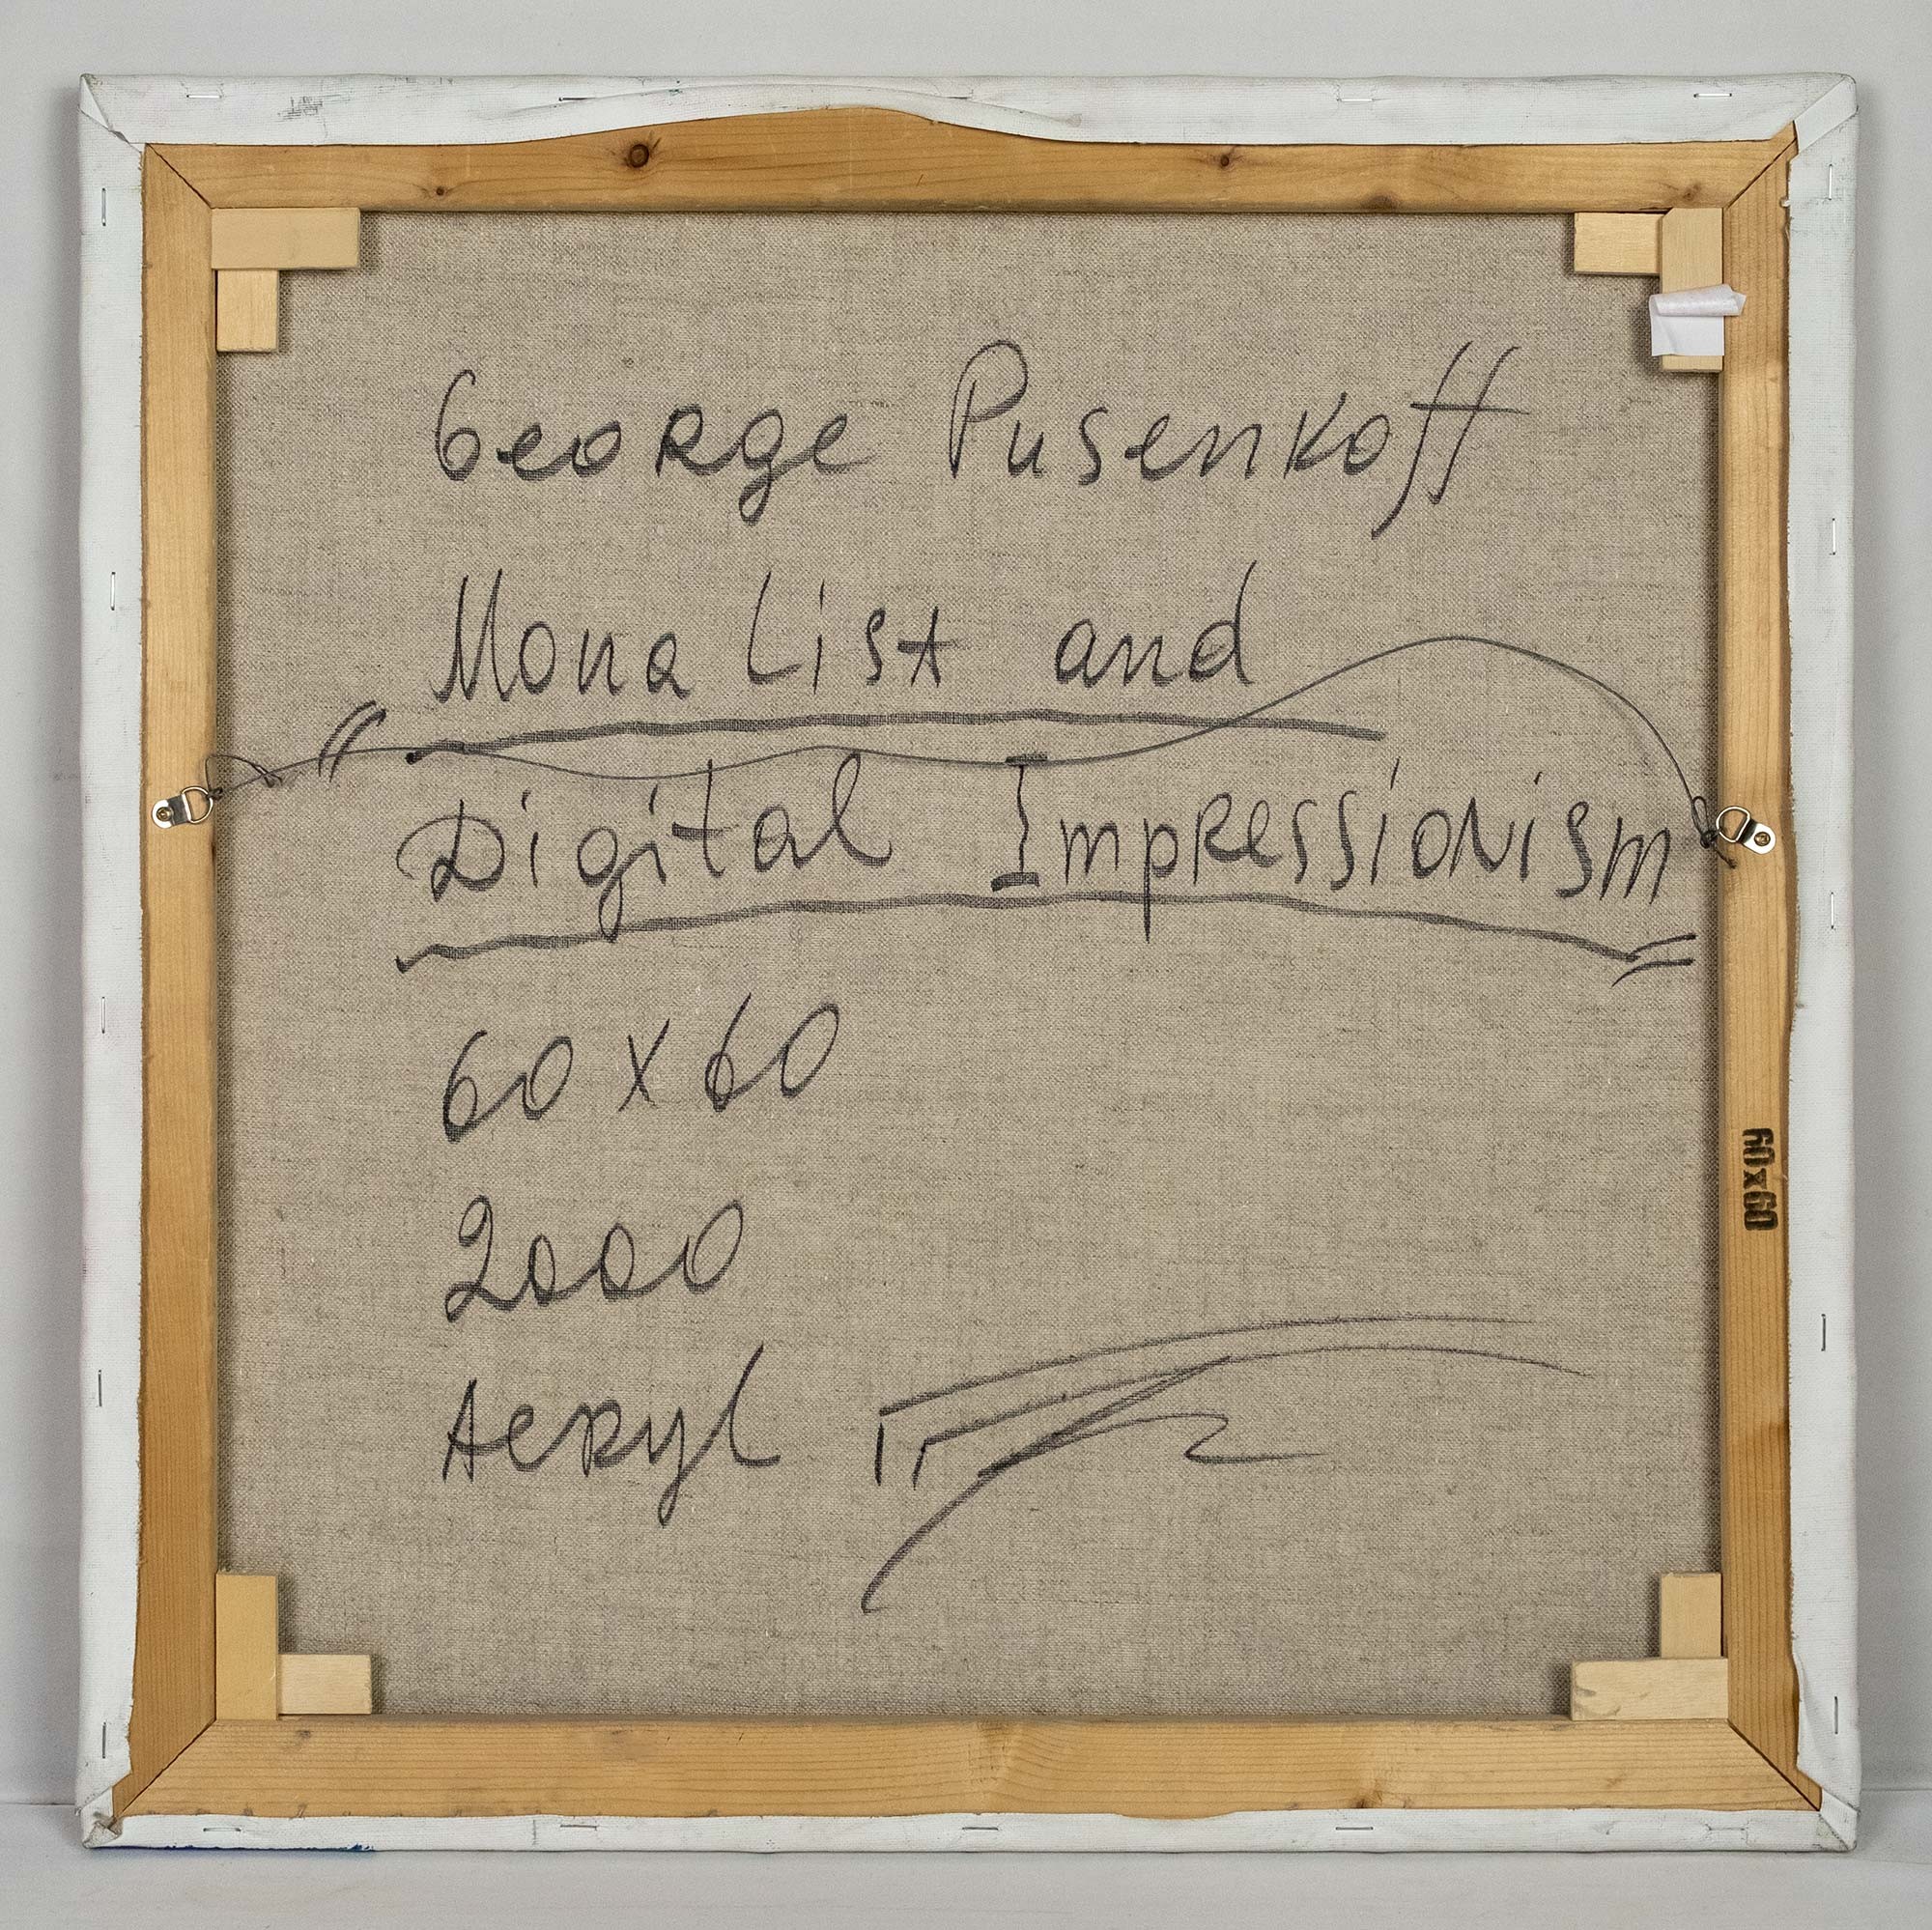 George Pusenkoff
"Mona List and
Digital Impressionism"
60 x 60
2000
Acryl
60x60